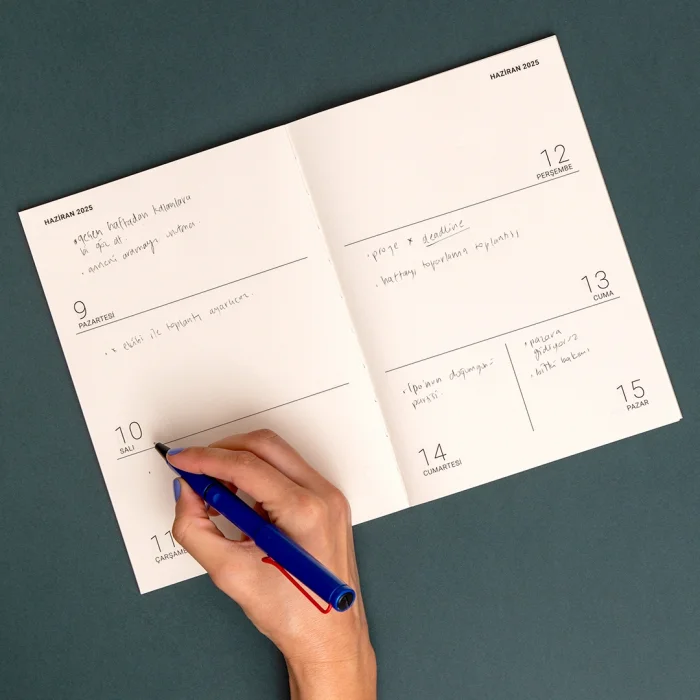 HAZİRAN 2025
• geçen haftadan kalanlara
bi göz at.
• anneni aramayı unutma
9
PAZARTESİ
• x ekibi ile toplantı ayarlıcaz.
10
SALI
11
ÇARŞAMB
HAZİRAN 2025
12
PERŞEMBE
• proje x deadline
• haftayı toparlama toplantısı
13
CUMA
doğumgünü
partisi.
14
CUMARTESİ
• pazara
gidiyoruz
• bitki bakımı
15
PAZAR